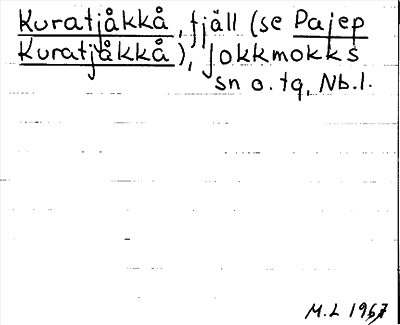 Kuratjåkkå, fjäll (se Pajep
Kuratjåkkå), Jokkmokks
sn o. tg, Nb.l.
M.L 1967